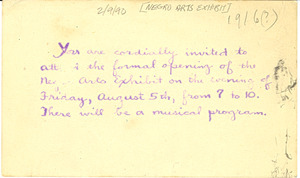 2/9/90 [NEGRO ARTS EXHIBIT] 1916(?)
You are cordially invited to
att the formal opening of the
Ne Arts Exhibit on the evening of
Friday, August 5th, from 7 to 10.
There will be a musical program.